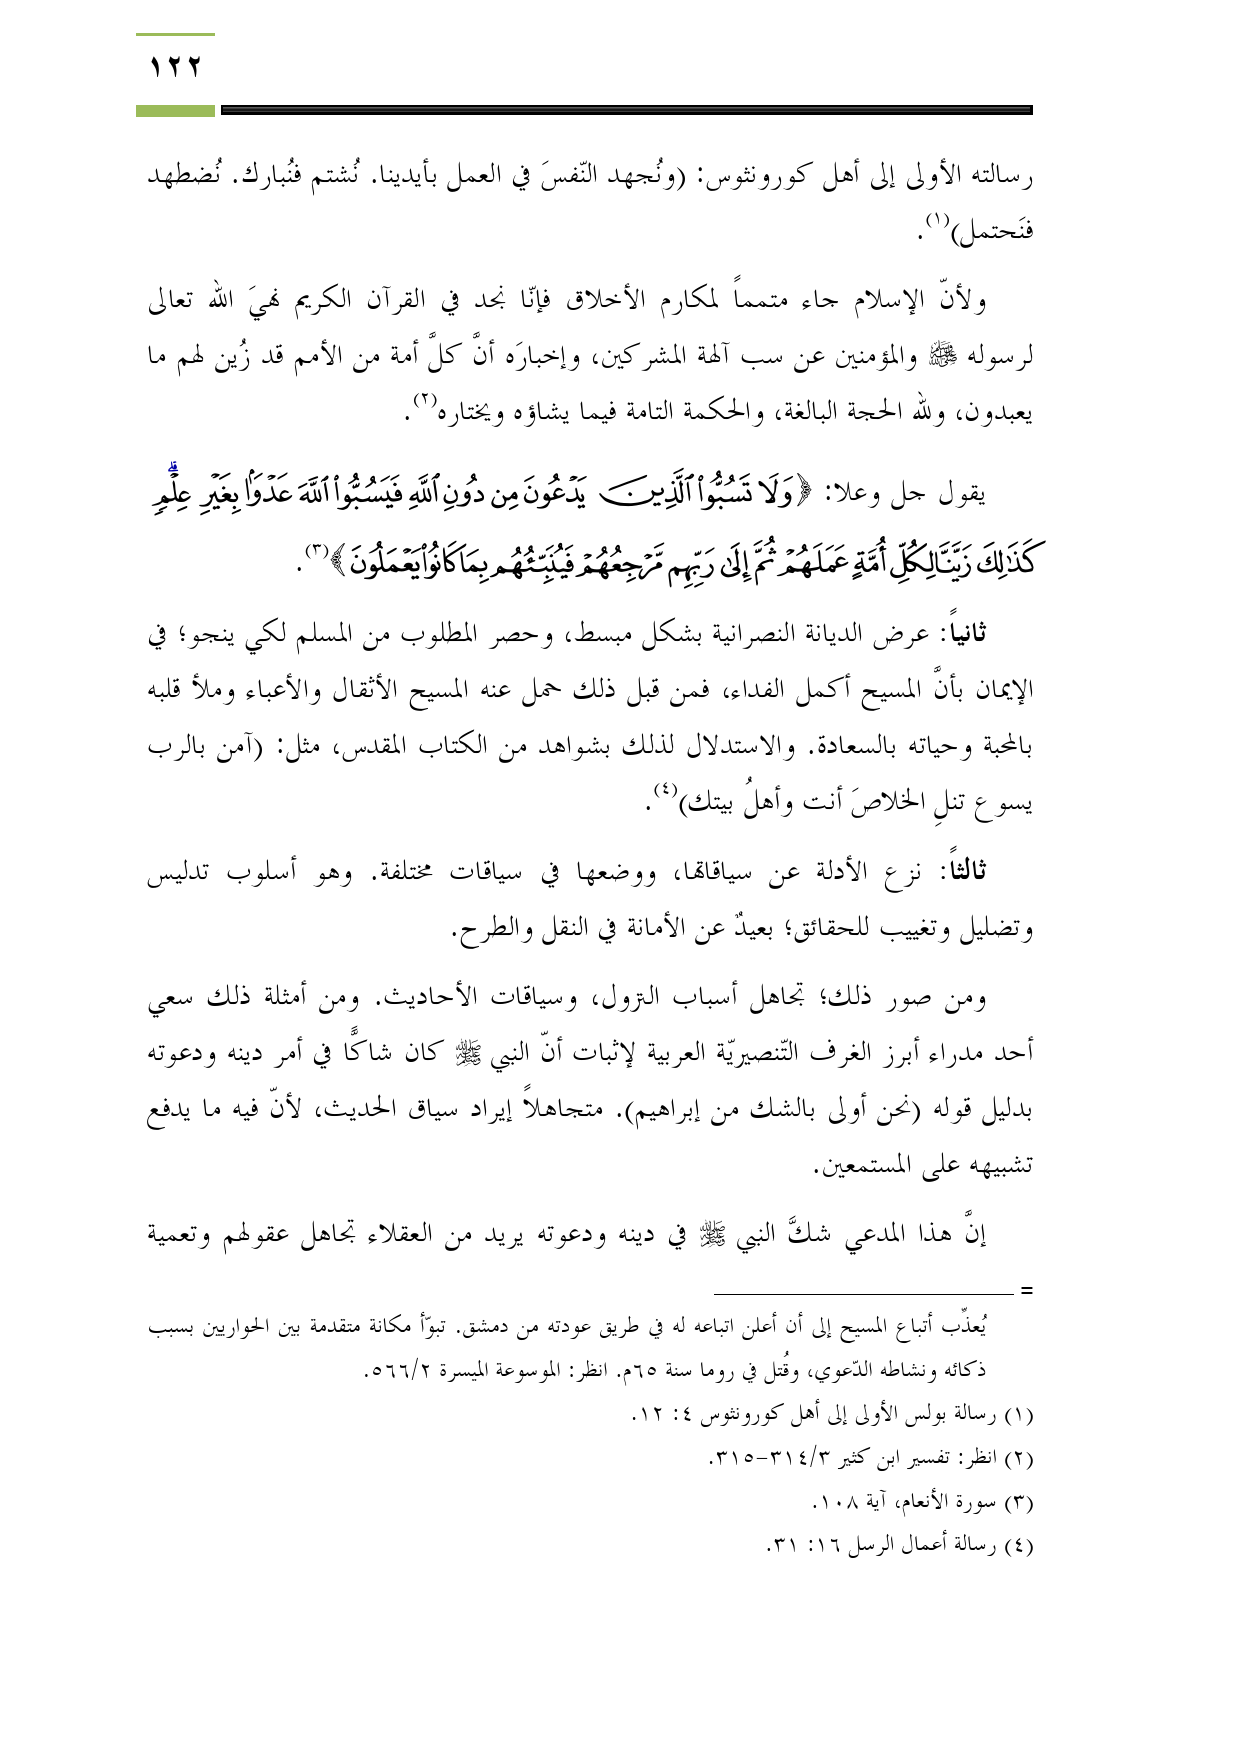 ١٢٢
رسالته الأولى إلى أهل كورونثوس: (ونُجهد النّفسَ في العمل بأيدينا. نُشتم فنُبارك. نُضطهد
فنَحتمل)(١).
ولأنّ الإسلام جاء متمماً لمكارم الأخلاق فإنّا نجد في القرآن الكريم نهيَ الله تعالى
لرسوله ﷺ والمؤمنين عن سب آلهة المشركين، وإخبارَه أنَّ كلَّ أمة من الأمم قد زُين لهم ما
يعبدون، ولله الحجة البالغة، والحكمة التامة فيما يشاؤه ويختاره(٢).
يقول جل وعلا: ﴿وَلَا تَسُبُّوا۟ ٱلَّذِينَ يَدْعُونَ مِن دُونِ ٱللَّهِ فَيَسُبُّوا۟ ٱللَّهَ عَدْوَۢا بِغَيْرِ عِلْمٍۢ ۗ
كَذَٰلِكَ زَيَّنَّا لِكُلِّ أُمَّةٍ عَمَلَهُمْ ثُمَّ إِلَىٰ رَبِّهِم مَّرْجِعُهُمْ فَيُنَبِّئُهُم بِمَا كَانُوا۟ يَعْمَلُونَ﴾(٣).
ثانياً: عرض الديانة النصرانية بشكل مبسط، وحصر المطلوب من المسلم لكي ينجو؛ في
الإيمان بأنَّ المسيح أكمل الفداء، فمن قبل ذلك حمل عنه المسيح الأثقال والأعباء وملأ قلبه
بالمحبة وحياته بالسعادة. والاستدلال لذلك بشواهد من الكتاب المقدس، مثل: (آمن بالرب
يسوع تنلِ الخلاصَ أنت وأهلُ بيتك)(٤).
ثالثاً: نزع الأدلة عن سياقاتها، ووضعها في سياقات مختلفة. وهو أسلوب تدليس
وتضليل وتغييب للحقائق؛ بعيدٌ عن الأمانة في النقل والطرح.
ومن صور ذلك؛ تجاهل أسباب النزول، وسياقات الأحاديث. ومن أمثلة ذلك سعي
أحد مدراء أبرز الغرف التّنصيريّة العربية لإثبات أنّ النبي ﷺ كان شاكًّا في أمر دينه ودعوته
بدليل قوله (نحن أولى بالشك من إبراهيم). متجاهلاً إيراد سياق الحديث، لأنّ فيه ما يدفع
تشبيهه على المستمعين.
إنَّ هذا المدعي شكَّ النبي ﷺ في دينه ودعوته يريد من العقلاء تجاهل عقولهم وتعمية
=
يُعذِّب أتباع المسيح إلى أن أعلن اتباعه له في طريق عودته من دمشق. تبوّأ مكانة متقدمة بين الحواريين بسبب
ذكائه ونشاطه الدّعوي، وقُتل في روما سنة ٦٥م. انظر: الموسوعة الميسرة ٥٦٦/٢.
(١) رسالة بولس الأولى إلى أهل كورونثوس ٤: ١٢.
(٢) انظر: تفسير ابن كثير ٣١٤/٣-٣١٥.
(٣) سورة الأنعام، آية ١٠٨.
(٤) رسالة أعمال الرسل ١٦: ٣١.